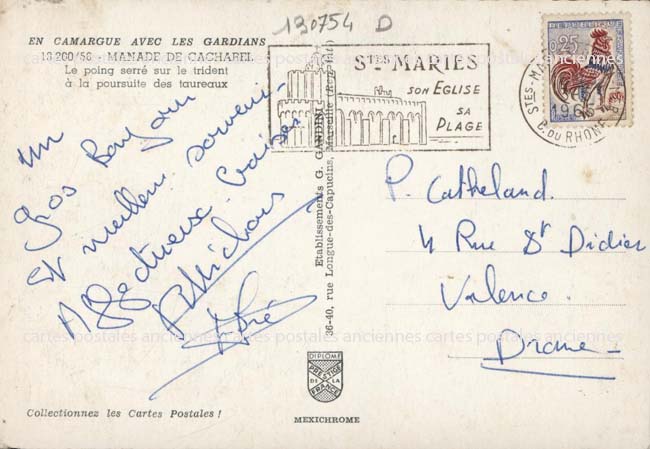 130754 D
EN CAMARGUE AVEC LES GARDIANS
13 200/56 - MANADE DE CACHAREL
Le poing serré sur le trident
à la poursuite des taureaux
Un
Gros Bonjour
et meilleur souvenir
Affectueux
STES MARIES
SON ÉGLISE
SA
PLAGE
0,25
STES-MA
1965
B. DU RHONE
Etablissements G. GANDINI
36-40, rue Longue-des-Capucins, Marseille
P. Catheland
4 Rue St Didier
Valence
Drome
cartes postales anciennes cartes postales anciennes cartes postales anciennes
DIPLOME
PRESTIGE
DE LA
FRANCE
Collectionnez les Cartes Postales !
MEXICHROME